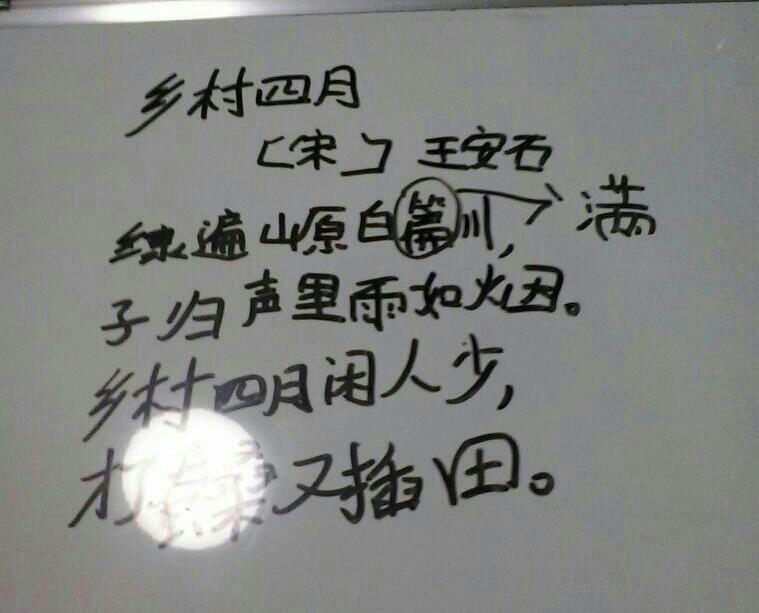 乡村四月
[宋] 王安石
绿遍山原白篇川, → 满
子归声里雨如烟。
乡村四月闲人少,
才了桑又插田。